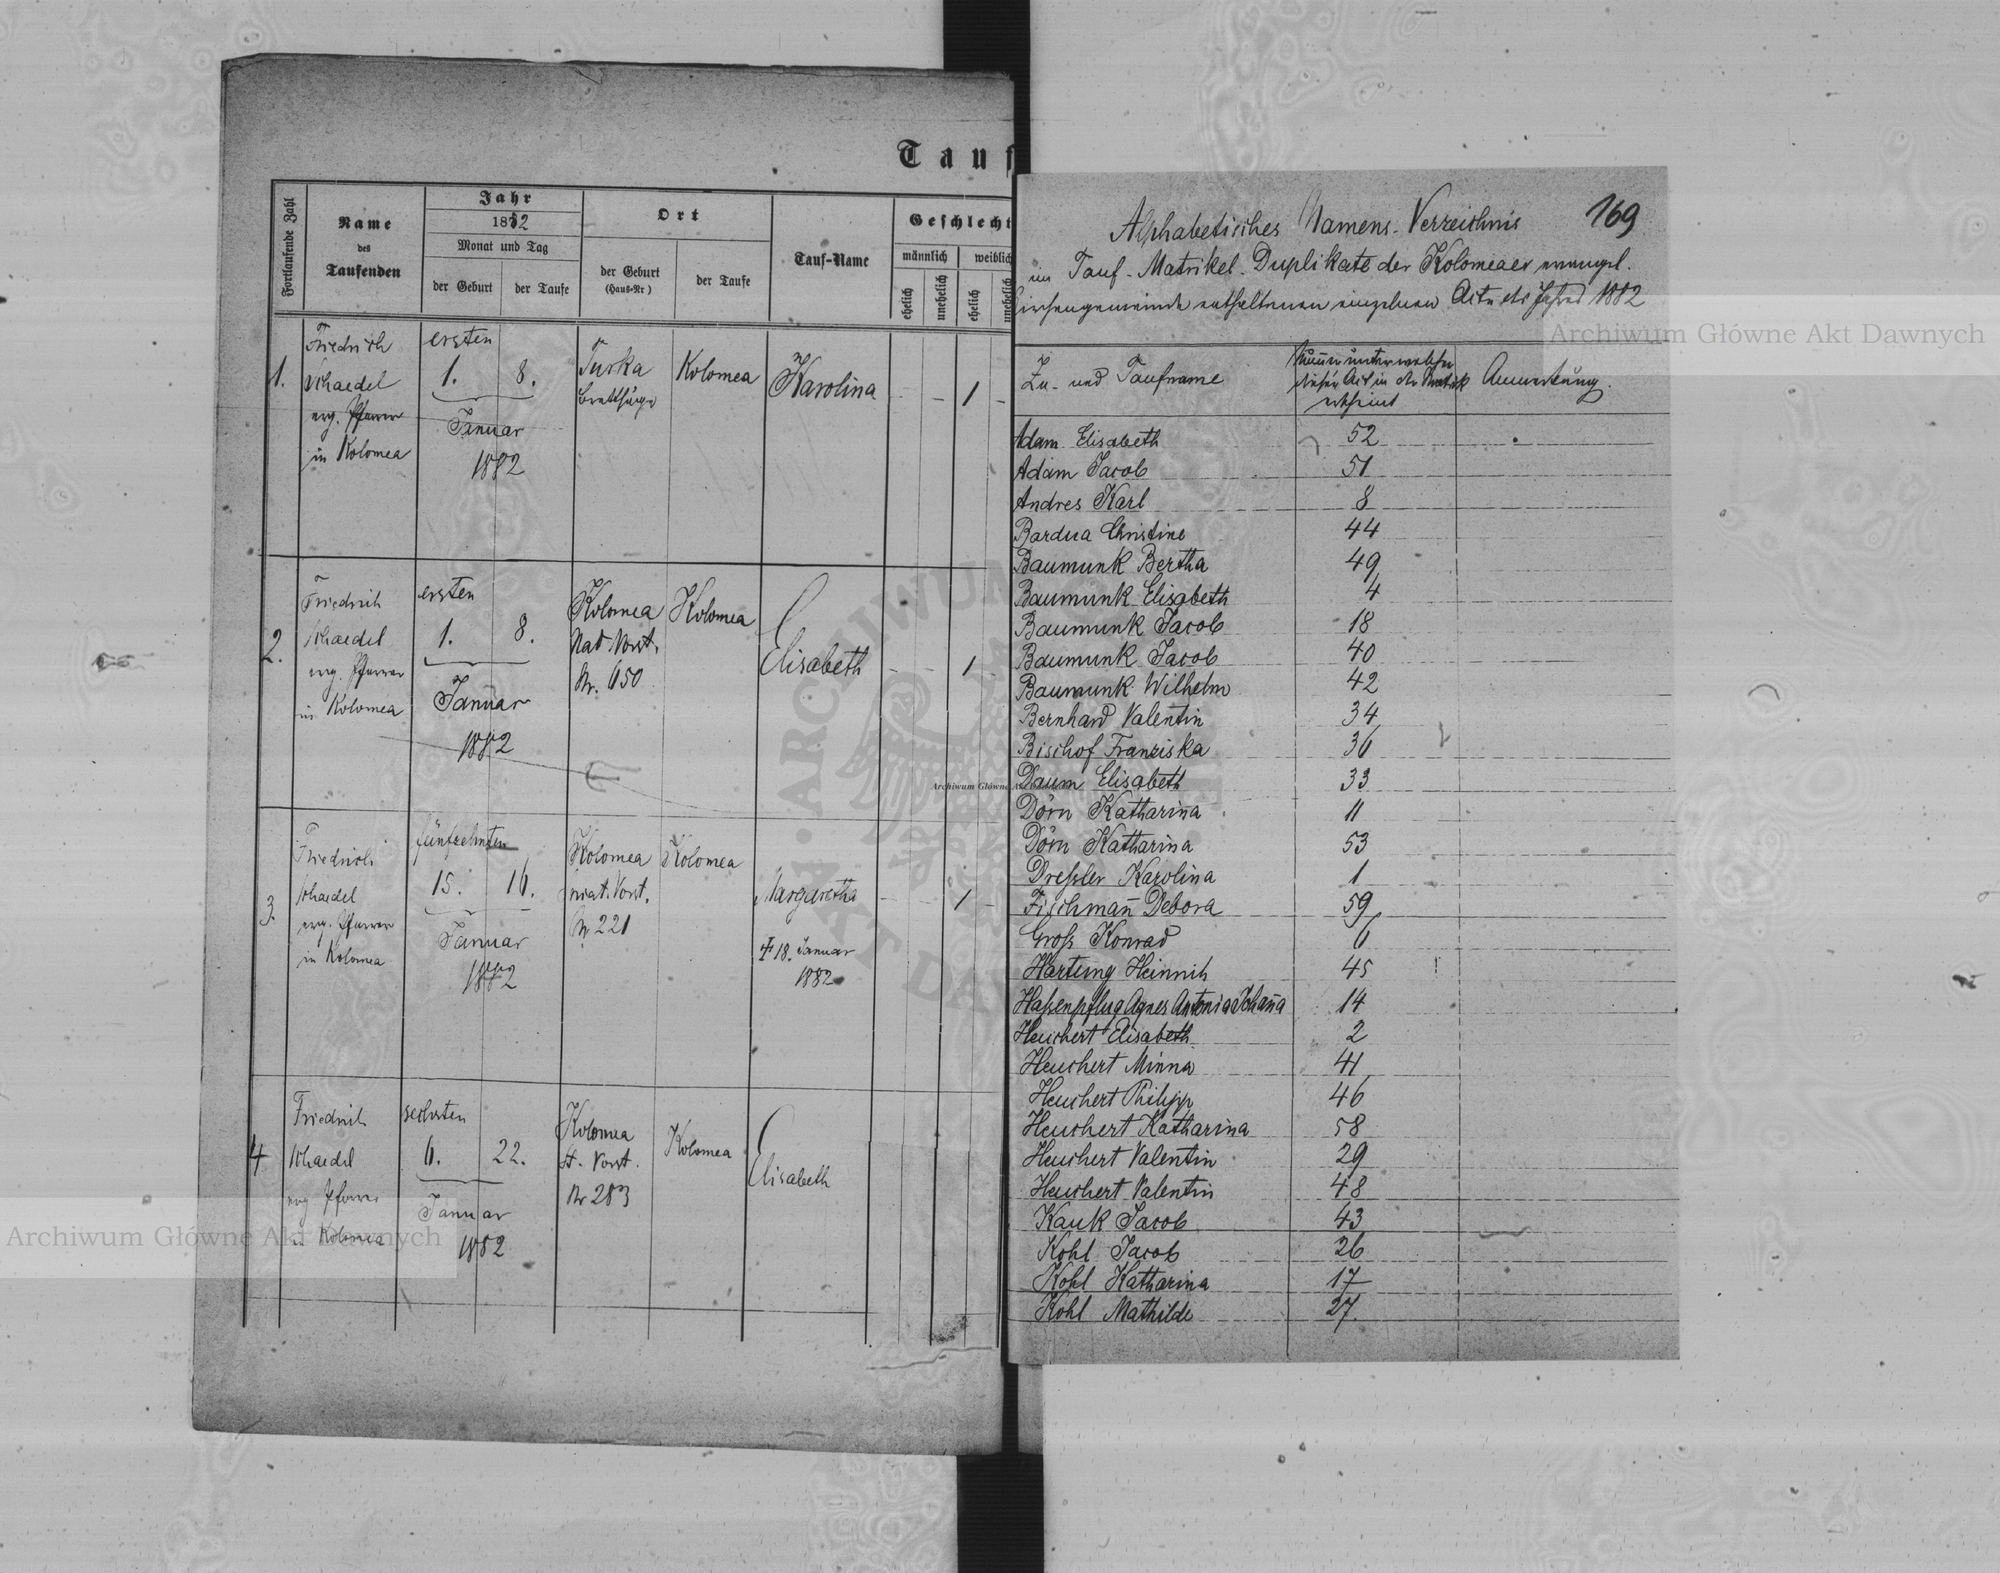 Tauf
Fortlaufende Zahl
Name
des
Taufenden
Jahr
1882
Monat und Tag
der Geburt
der Taufe
Ort
der Geburt
(Haus-Nr.)
der Taufe
Tauf-Name
Geschlecht
männlich
weiblich
ehelich
unehelich
ehelich
unehelich
1.
Friedrich
Schaedel
evg. Pfarrer
in Kolomea
ersten
1.
8.
Januar
1882
Turka
Brettsäge
Kolomea
Karolina
1
2.
Friedrich
Schaedel
evg. Pfarrer
in Kolomea
ersten
1.
8.
Januar
1882
Kolomea
Nad. Vorst.
Nr. 650
Kolomea
Elisabeth
1
3.
Friedrich
Schaedel
evg. Pfarrer
in Kolomea
fünfzehnten
15.
16.
Januar
1882
Kolomea
Vorst.
Nr 221
Kolomea
Margaretha
18. Januar
1882
1
4
Friedrich
Schaedel
evg Pfarrer
in Kolomea
sechsten
6.
22.
Januar
1882
Kolomea
St. Vorst.
Nr 283
Kolomea
Elisabeth
169
Alphabetisches Namens-Verzeichnis
im Tauf-Matrikel-Duplikate der Kolomeaer evangel.
Kirchengemeinde enthaltenen einzelnen Akte des Jahres 1882
Zu- und Taufname
Nummer unter welcher
dieser Act in der Matrik
erscheint
Anmerkung.
Adam Elisabeth 52
Adam Jacob 51
Andres Karl 8
Bardua Christine 44
Baumunk Bertha 49
Baumunk Elisabeth 4
Baumunk Jacob 18
Baumunk Jacob 40
Baumunk Wilhelm 42
Bernhard Valentin 34
Bischof Franziska 36
Daum Elisabeth 33
Dörn Katharina 11
Dörn Katharina 53
Dreßler Karolina 1
Fischmañ Debora 59
Groß Konrad 6
Hartung Heinrich 45
Haßenpflug Agnes Antonia Johaña 14
Heuchert Elisabeth 2
Heuchert Minna 41
Heuchert Philipp 46
Heuchert Katharina 58
Heuchert Valentin 29
Heuchert Valentin 48
Kauk Jacob 43
Kohl Jacob 26
Kohl Katharina 17
Kohl Mathilde 27.
Archiwum Główne Akt Dawnych
Archiwum Główne Akt Dawnych
Archiwum Główne Akt Dawnych